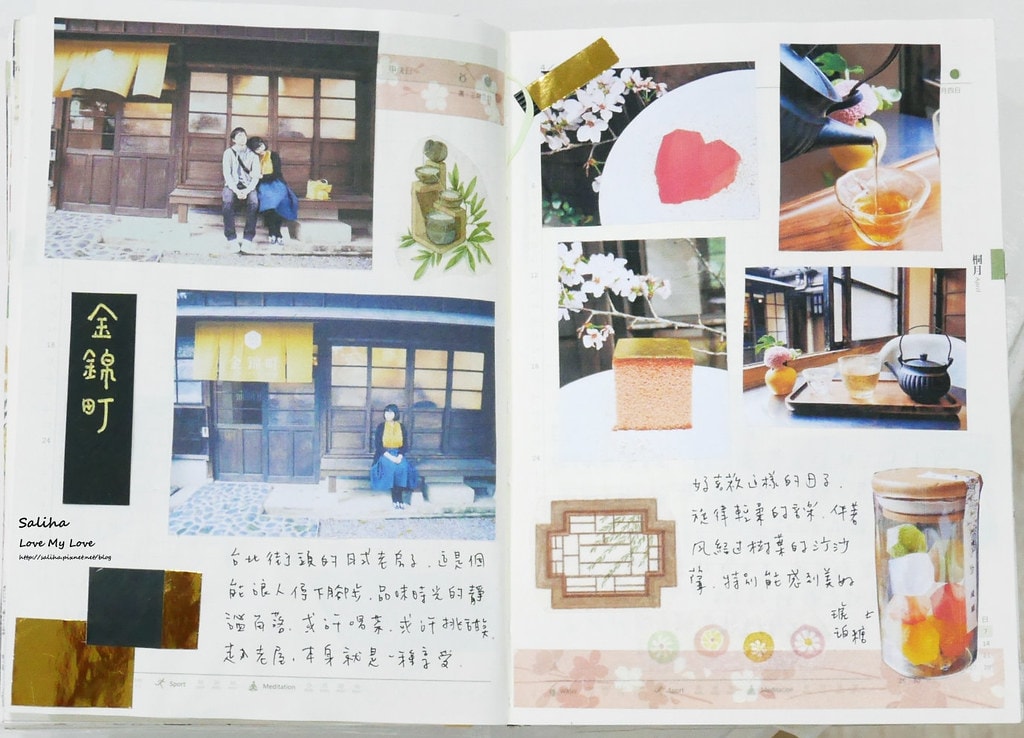 金錦町
Saliha
Love My Love
http://saliha.pixnet.net/blog
台北街頭的日式老房子,這是個
能讓人停下腳步,品味時光的靜
謐角落,或許喝茶,或許挑甜點
走入老屋,本身就是一種享受.
Sport
Meditation
桐月
April
好喜歡這樣的日子,
旋律輕柔的音樂,伴著
風經過樹葉的沙沙
聲,特別能感到美好
琥珀糖
Sport